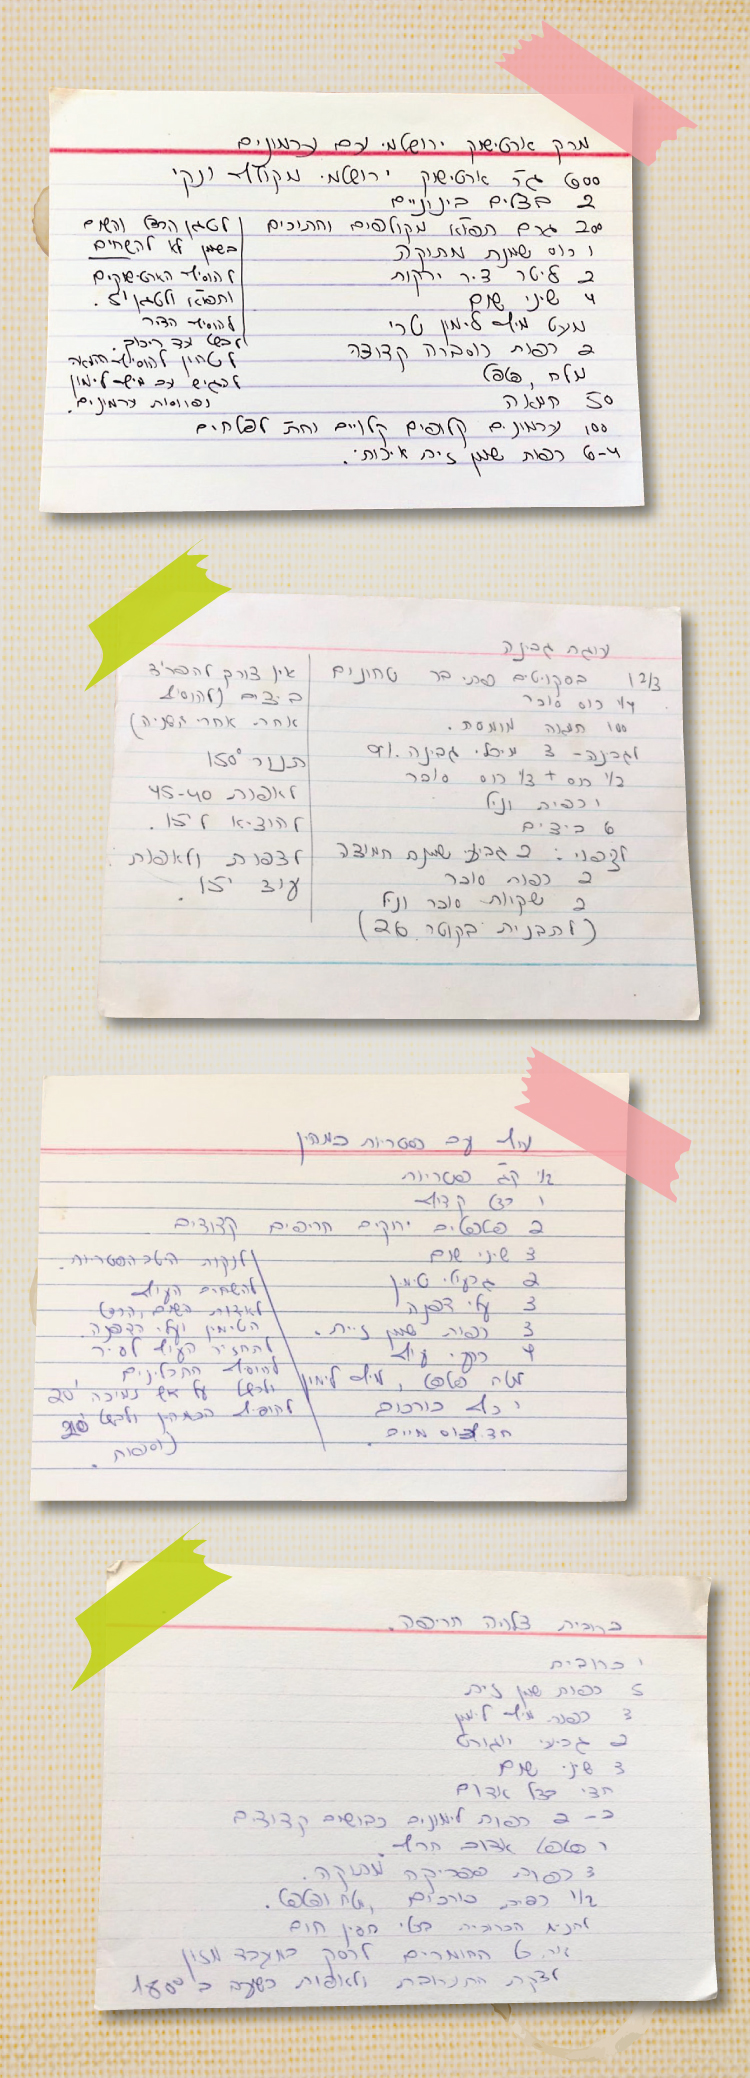 מרק ארטישוק ירושלמי עם ערמונים
600 גר' ארטישוק ירושלמי מקולף ונקי
2 בצלים בינוניים
200 גרם תפו"א מקולפים וחתוכים
1 כוס שמנת מתוקה
2 ליטר ציר ירקות
4 שיני שום
מעט מיץ לימון טרי
2 כפות כוסברה קצוצה
מלח, פלפל
50 חמאה
100 ערמונים קלופים קלויים וחת' לפלחים
6-4 כפות שמן זית איכותי.
לטגן הבצל והשום
בשמן לא להשחים
להוסיף הארטישוקים
ותפו"א ולטגן 5'.
להוסיף הציר
לבשל עד ריכוך.
לטחון להוסיף חמאה
להגיש עם מיץ לימון
ופרוסות ערמונים.
עוגת גבינה
1 2/3 בסקויטים פתי בר טחונים
1/4 כוס סוכר
100 חמאה מומסת.
לגבינה- 3 מיכלי גבינה 9%.
1/2 כוס + 1/3 כוס סוכר
1 כפית וניל
6 ביצים
לציפוי: 2 גביעי שמנת חמוצה
2 כפות סוכר
2 שקיות סוכר וניל
(לתבנית בקוטר 26)
אין צורך להפריד
ביצים (להוסיף
אחת אחרי השניה)
תנור 150°
לאפות 45-40
להוציא ל 15'.
לצפות ולאפות
עוד 15'.
עוף עם פטריות כמהין
1/2 קג' פטריות
1 בצל קצוץ
2 פלפלים ירוקים חריפים קצוצים
3 שיני שום
2 גבעולי טימין
3 עלי דפנה
3 כפות שמן זית.
4 כרעי עוף
מלח פלפל, מיץ לימון
1 כף כורכום
חצי כוס מים.
לנקות היטב הפטריות.
להשחים העוף
לאדות השום והבצל
הטימין ועלי הדפנה.
להחזיר העוף לסיר
להוסיף התבלינים
ולבשל על אש נמוכה 20'
להוסיף הכמהין ולבשל 20'
נוספות.
כרובית צלויה חריפה.
1 כרובית
5 כפות שמן זית
3 כפות מיץ לימון
2 גביעי יוגורט
3 שיני שום
חצי בצל אדום
כ- 2 כפות לימונים כבושים קצוצים
1 פלפל אדום חריף.
3 כפות פפריקה מתוקה.
1/2 כפית כורכום, מלח ופלפל.
להניח הכרובית בכלי חסין חום
את כל החומרים לרסק במעבד מזון
לצקת התערובת ולאפות כשעה ב 180°